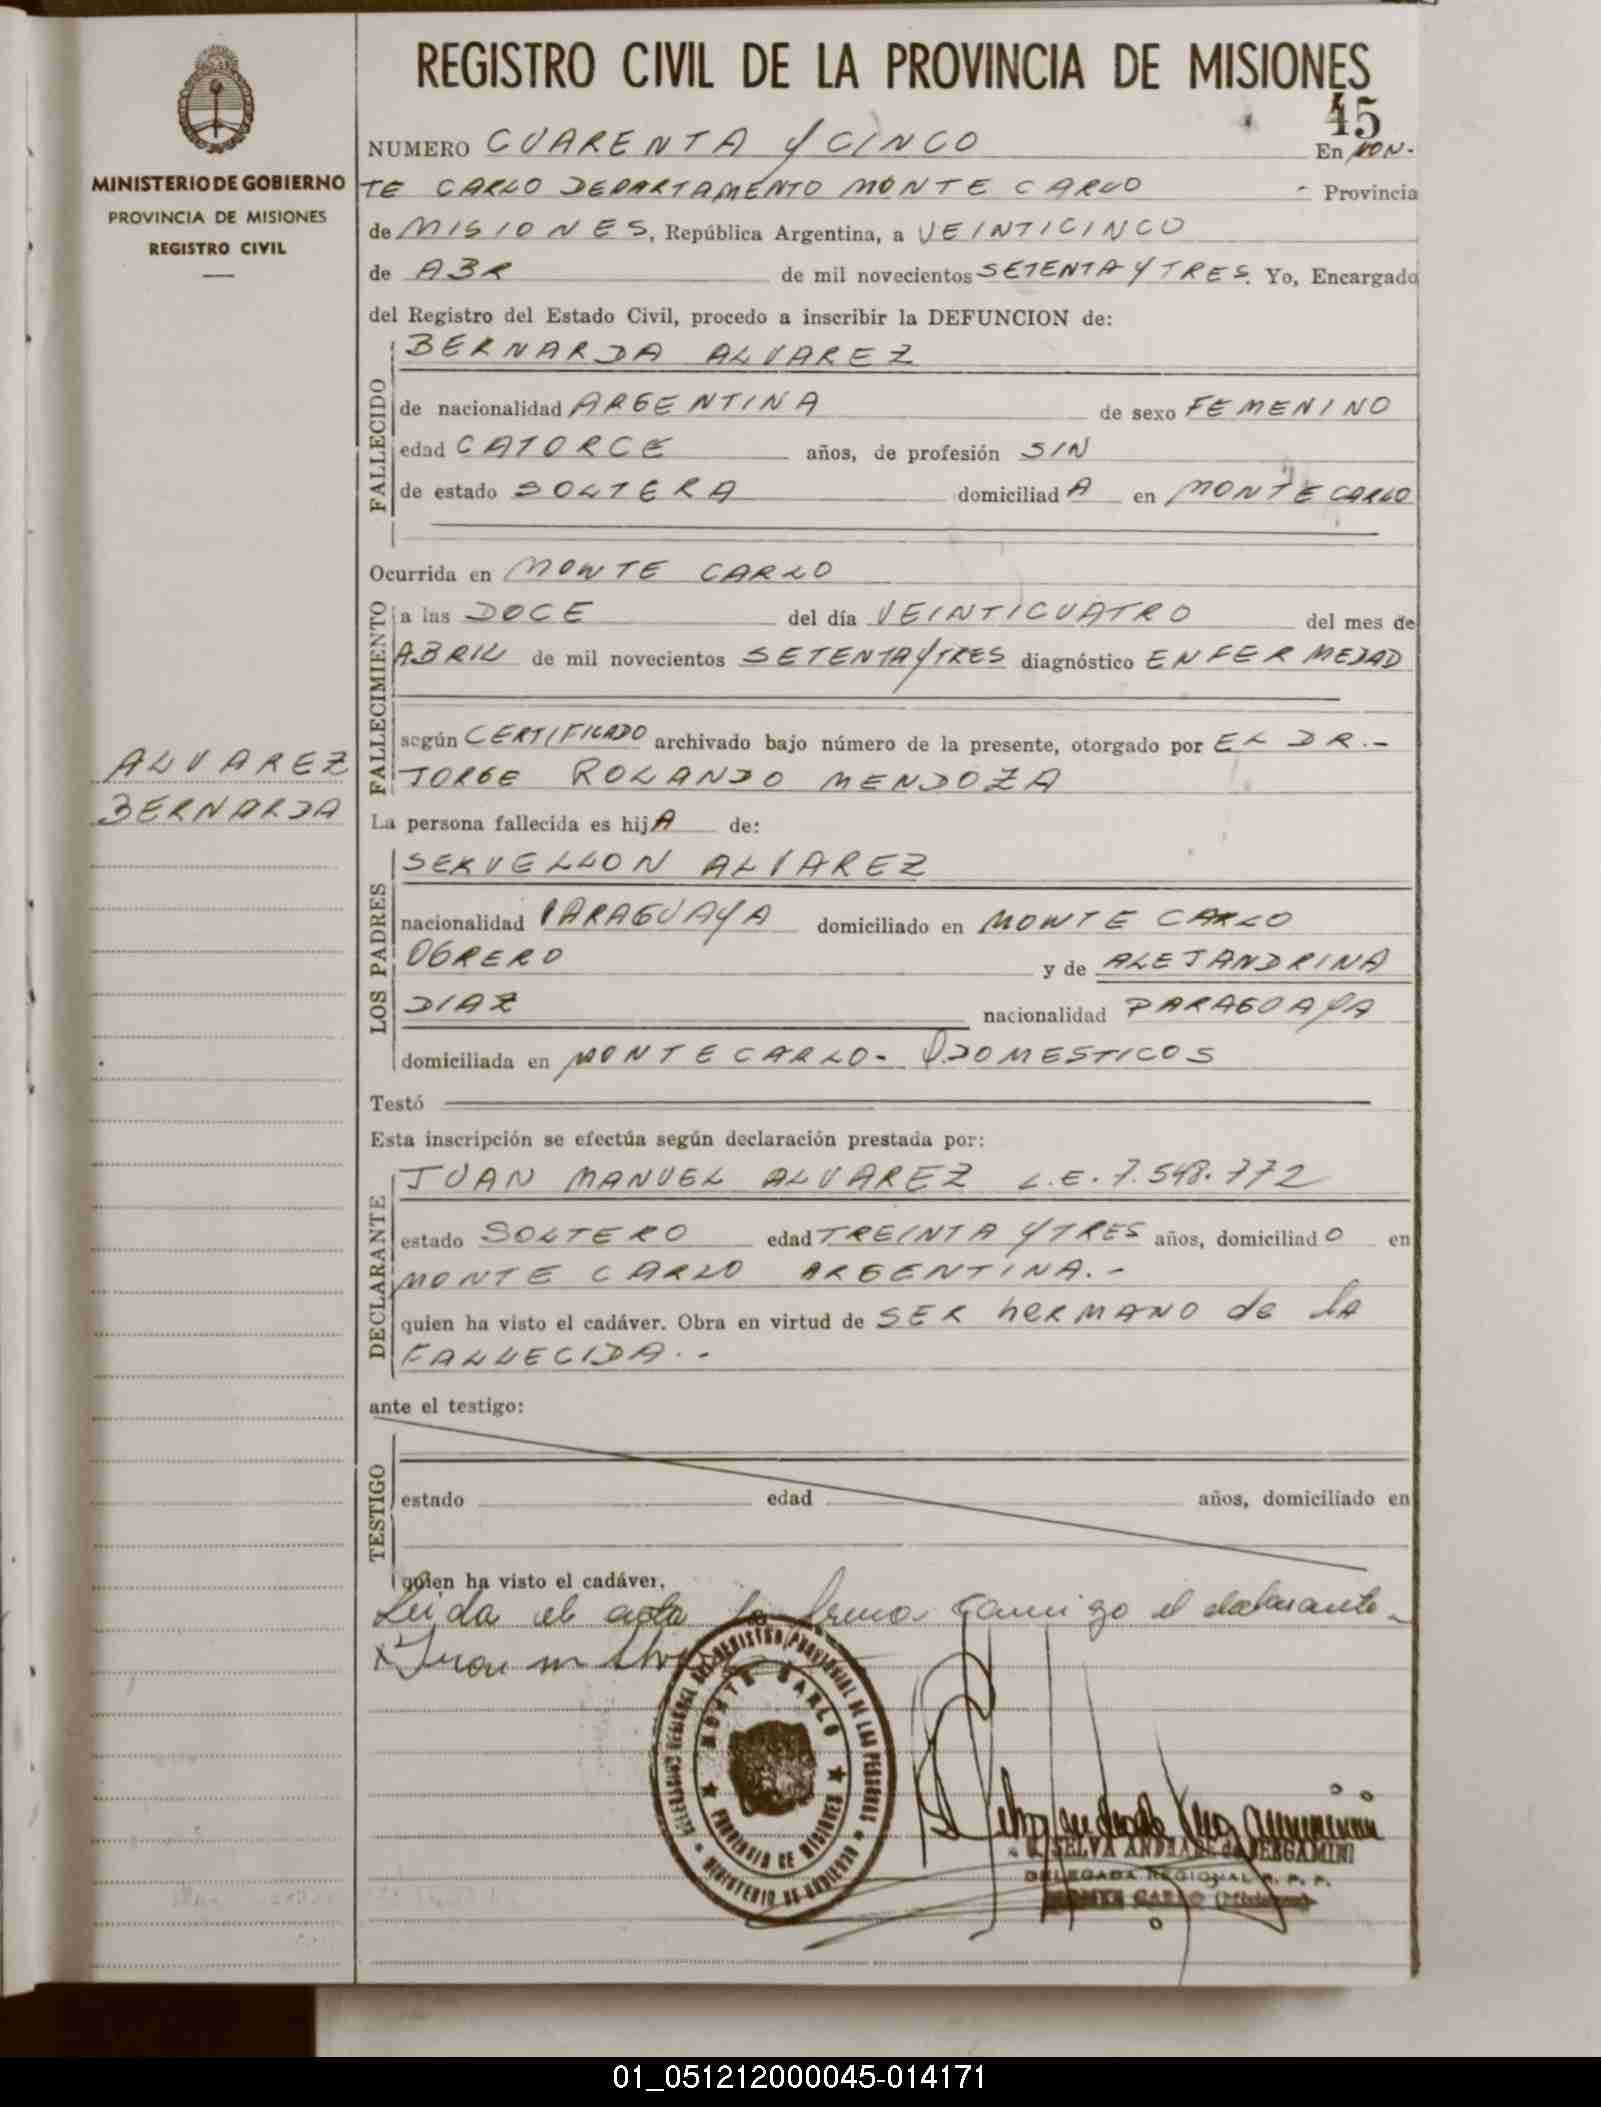 REGISTRO CIVIL DE LA PROVINCIA DE MISIONES
45
MINISTERIO DE GOBIERNO
PROVINCIA DE MISIONES
REGISTRO CIVIL
NUMERO CUARENTA Y CINCO En MON-
TE CARLO DEPARTAMENTO MONTE CARLO - Provincia
de MISIONES, República Argentina, a VEINTICINCO
de ABR de mil novecientos SETENTA Y TRES. Yo, Encargado
del Registro del Estado Civil, procedo a inscribir la DEFUNCION de:
FALLECIDO
BERNARDA ALVAREZ
de nacionalidad ARGENTINA de sexo FEMENINO
edad CATORCE años, de profesión SIN
de estado SOLTERA domiciliad A en MONTE CARLO
Ocurrida en MONTE CARLO
FALLECIMIENTO
a las DOCE del día VEINTICUATRO del mes de
ABRIL de mil novecientos SETENTA Y TRES diagnóstico ENFERMEDAD
según CERTIFICADO archivado bajo número de la presente, otorgado por EL DR.-
JORGE ROLANDO MENDOZA
ALVAREZ
BERNARDA
La persona fallecida es hij A de:
LOS PADRES
SERVELLON ALVAREZ
nacionalidad PARAGUAYA domiciliado en MONTE CARLO
OBRERO y de ALEJANDRINA
DIAZ nacionalidad PARAGUAYA
domiciliada en MONTE CARLO- Q.DOMESTICOS
Testó
Esta inscripción se efectúa según declaración prestada por:
DECLARANTE
JUAN MANUEL ALVAREZ L.E. 7.548.772
estado SOLTERO edad TREINTA Y TRES años, domiciliad O en
MONTE CARLO ARGENTINA.-
quien ha visto el cadáver. Obra en virtud de SER HERMANO de LA
FALLECIDA.-
ante el testigo:
TESTIGO
estado edad años, domiciliado en
quien ha visto el cadáver.
Leida el acta la firma conmigo el declarante-
Juan m Alva
DELEGACION REGIONAL DEL REGISTRO PROVINCIAL DE LAS PERSONAS
MONTE CARLO
PROVINCIA DE MISIONES
MINISTERIO DE GOBIERNO
SELVA ANDRADE de BERGAMINI
DELEGADA REGIONAL R. P. P.
MONTE CARLO (Misiones)
01_051212000045-014171